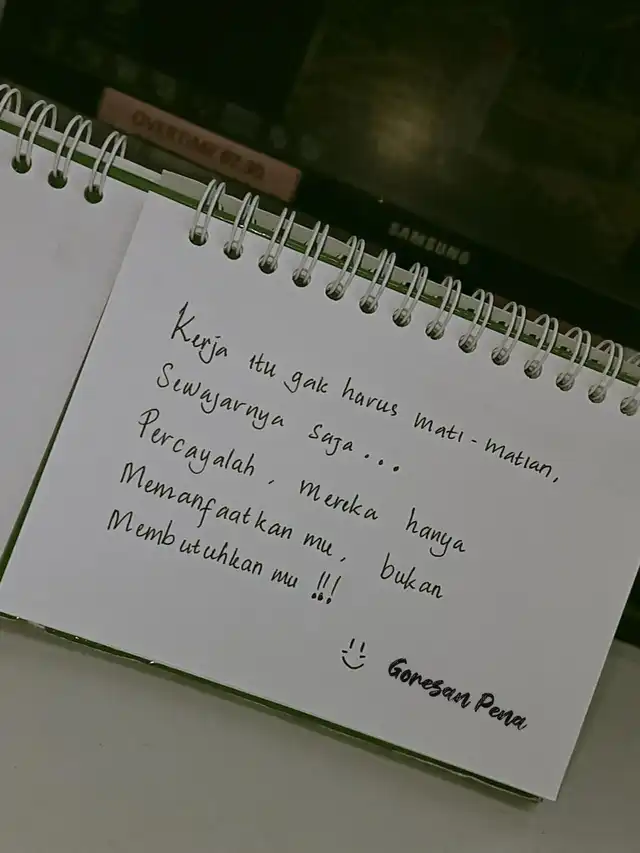 SAMSUNG
Kerja itu gak harus mati-matian,
Sewajarnya saja...
Percayalah, mereka hanya
Memanfaatkan mu, bukan
Membutuhkan mu !!!
Goresan Pena